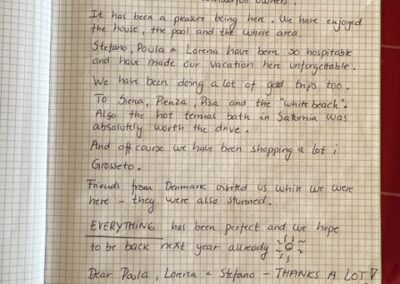 owners.
It has been a pleasure being here. We have enjoyed
the house, the pool and the whole area.
Stefano, Paula & Lorena have been so hospitable
and have made our vacation here unforgettable.
We have been doing a lot of good trips too.
To Siena, Pienza, Pisa and the "white beach".
Also the hot termal bath in Saturnia was
absolutely worth the drive.
And offcourse we have been shopping a lot i
Grosseto.
Friends from Denmark visited us while we were
here - they were also stunned.
EVERYTHING has been perfect and we hope
to be back next year allready
Dear Paula, Lorena & Stefano - THANKS A LOT